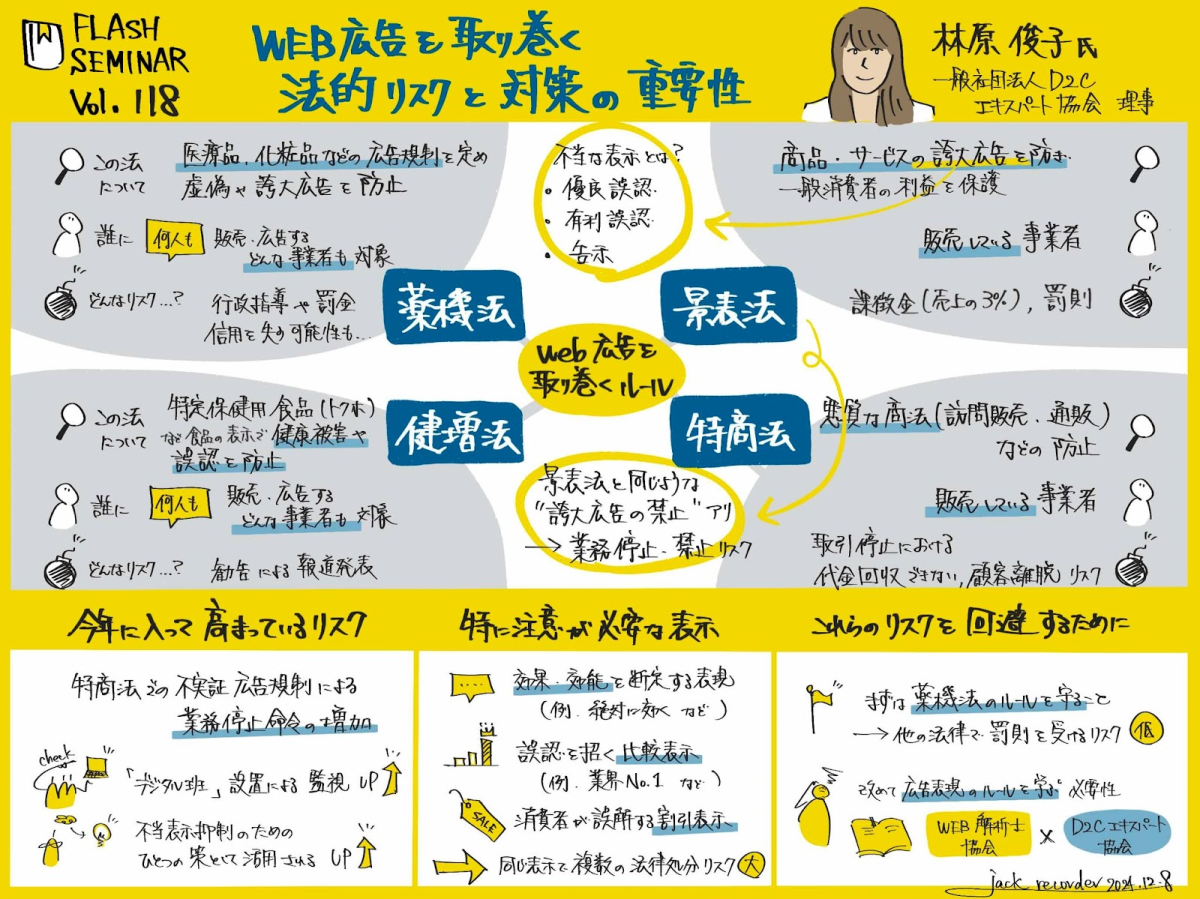 FLASH
SEMINAR
Vol. 118
WEB広告を取り巻く
法的リスクと対策の重要性
林原 俊子氏
一般社団法人D2C
エキスパート協会 理事
この法
について
医薬品、化粧品などの広告規制を定め
虚偽や誇大広告を防止
誰に
何人も
販売・広告する
どんな事業者も対象
どんなリスク…?
行政指導や罰金
信用を失う可能性も…
薬機法
不当な表示とは?
・優良誤認
・有利誤認
・告示
商品・サービスの誇大広告を防ぎ
一般消費者の利益を保護
販売している事業者
課徴金(売上の3%),罰則
景表法
web広告を
取り巻くルール
この法
について
特定保健用食品(トクホ)
など食品の表示で健康被害や
誤認を防止
誰に
何人も
販売・広告する
どんな事業者も対象
どんなリスク…?
勧告による報道発表
健増法
景表法と同じような
"誇大広告の禁止"アリ
→業務停止・禁止リスク
特商法
悪質な商法(訪問販売・通販)
などの防止
販売している事業者
取引停止における
代金回収できない,顧客離脱リスク
今年に入って高まっているリスク
特商法での不実証広告規制による
業務停止命令の増加
check
「デジタル班」設置による監視UP
不当表示抑制のための
ひとつの策として活用されるUP
特に注意が必要な表示
効果・効能を断定する表現
(例.絶対に効くなど)
誤認を招く比較表示
(例.業界No.1など)
SALE
消費者が誤解する割引表示
同じ表示で複数の法律処分リスク大
これらのリスクを回避するために
まずは薬機法のルールを守ること
→他の法律で罰則を受けるリスク低
改めて広告表現のルールを学ぶ必要性
WEB解析士
協会
×
D2Cエキスパート
協会
jack recorder 2024.12.8